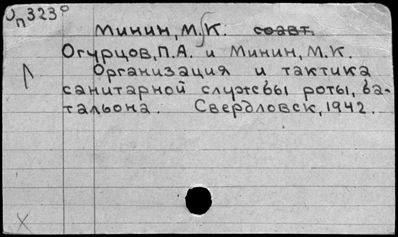 Оп323°
Минин, М.К. соавт.
Огурцов, П.А. и Минин, М.К.
Организация и тактика
санитарной службы роты, ба-
тальона. Свердловск, 1942.